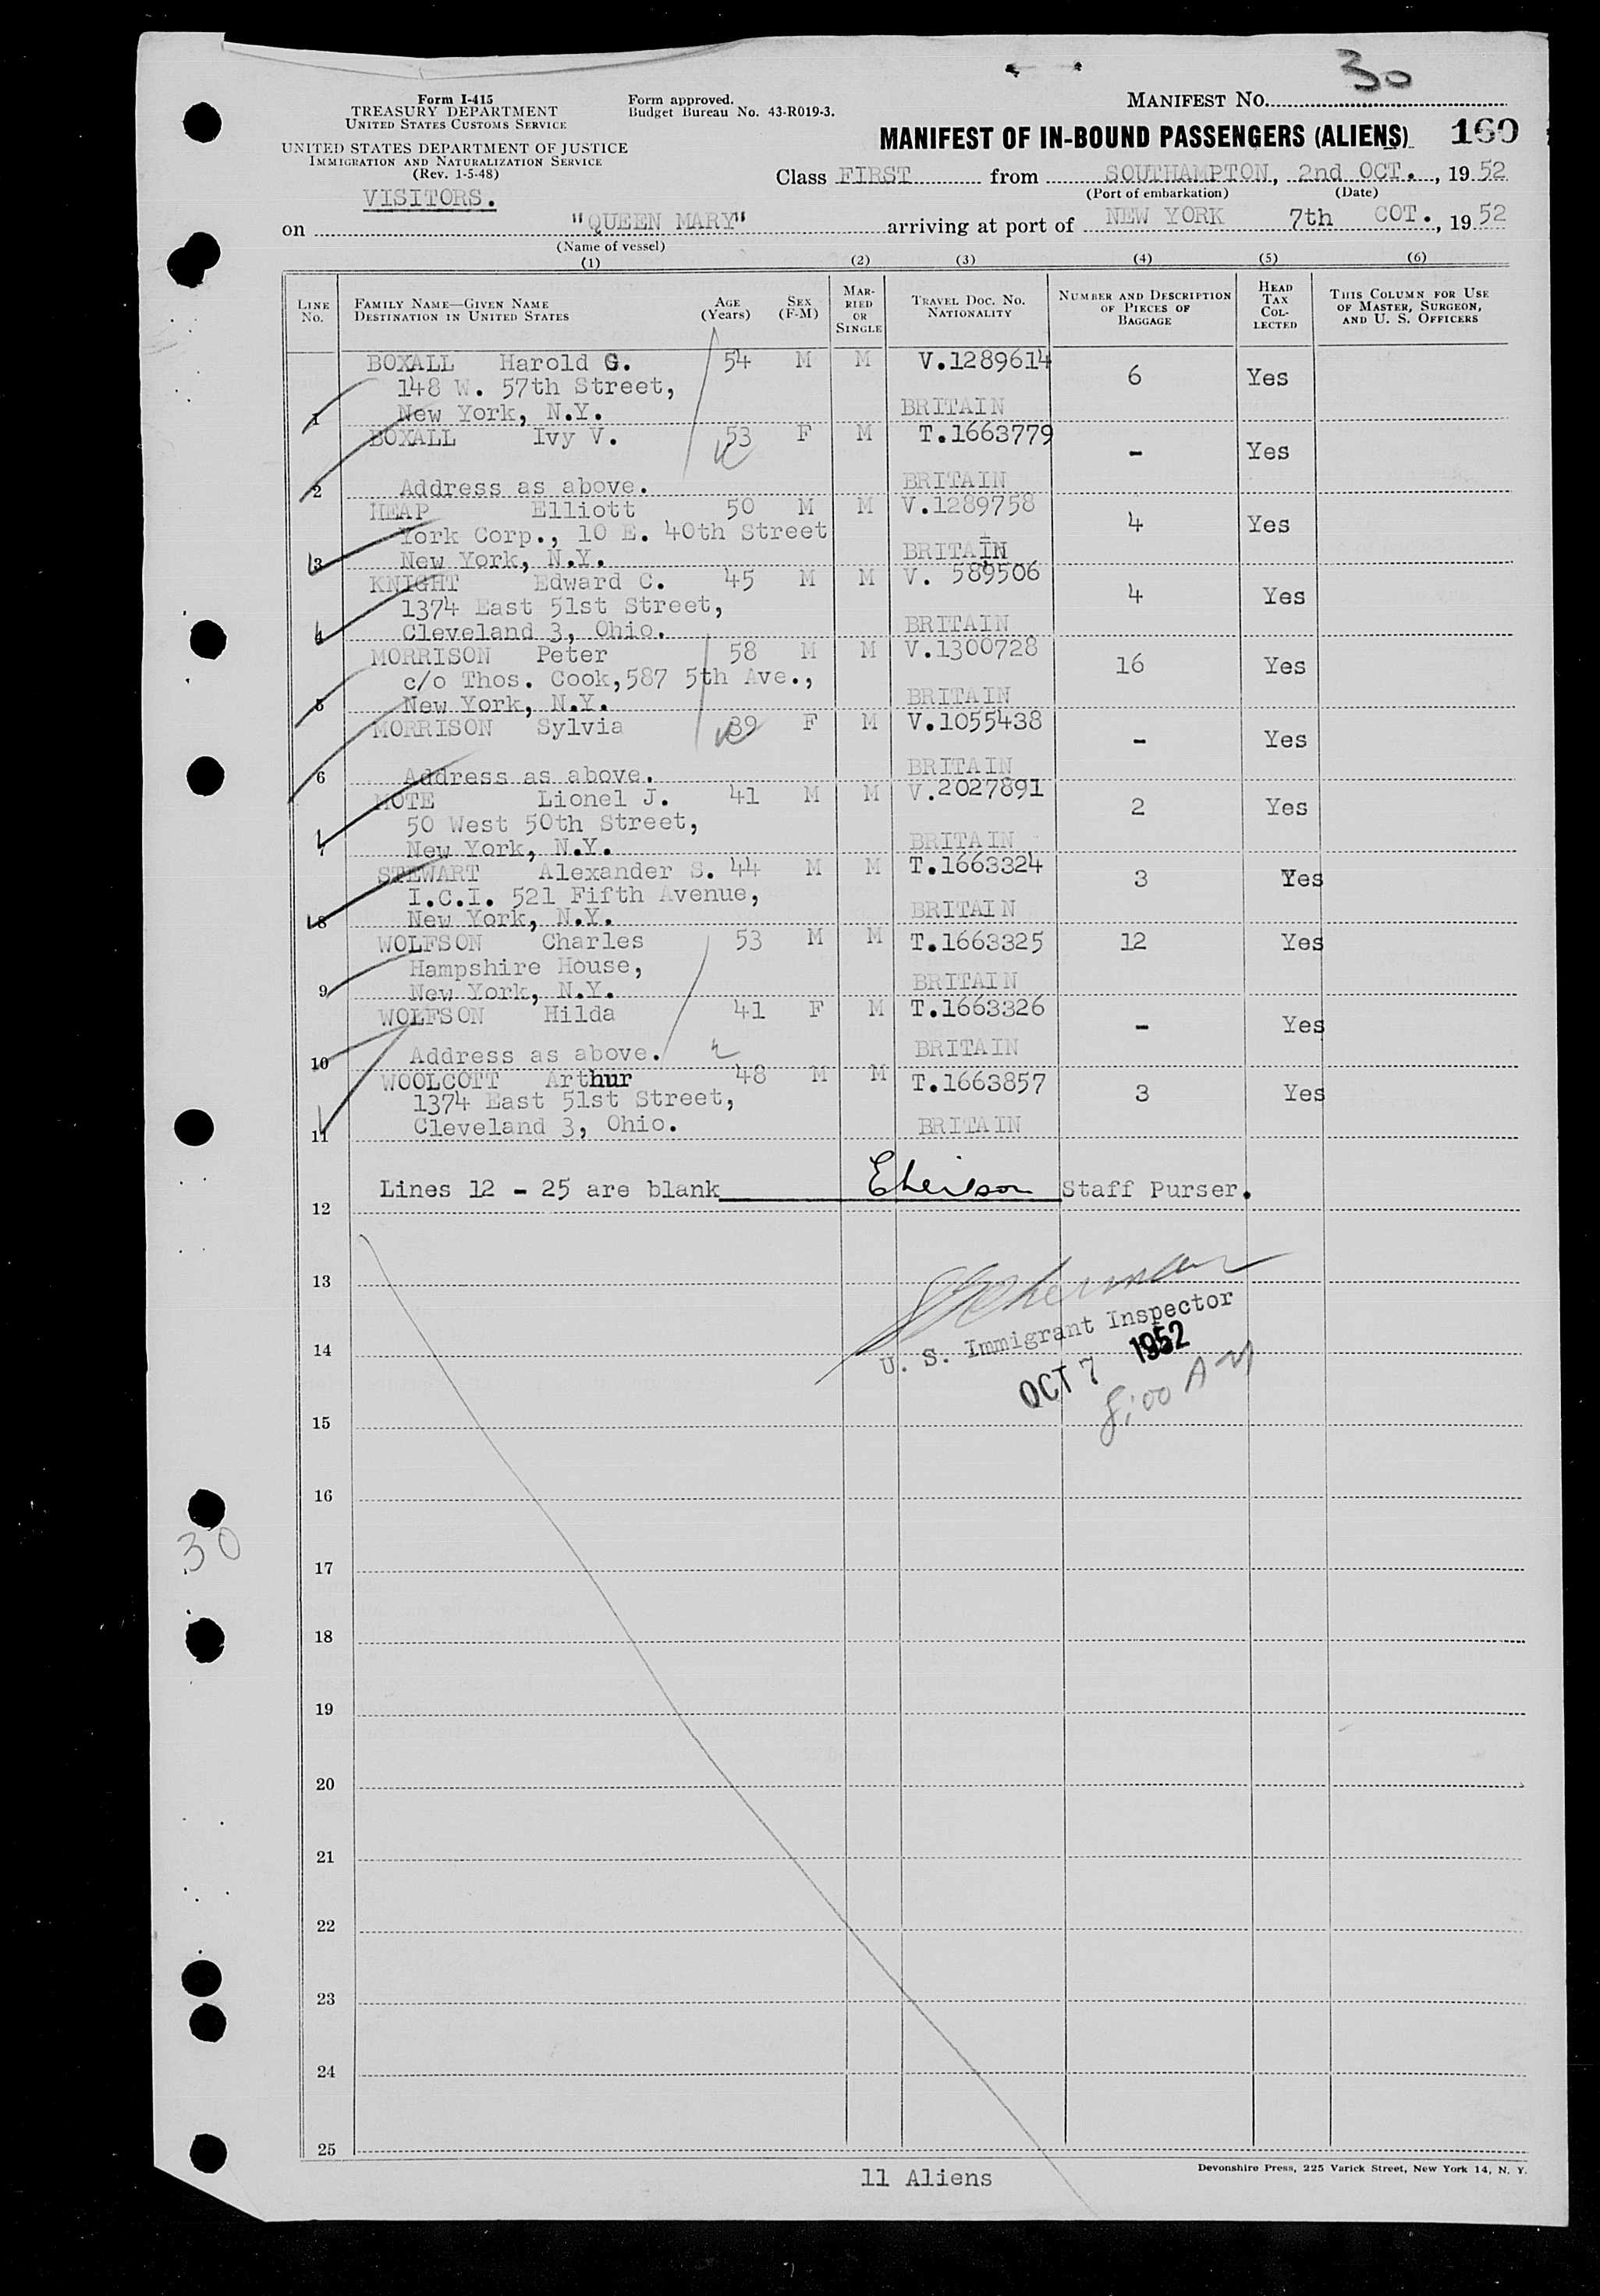 30
Form I-415
TREASURY DEPARTMENT
UNITED STATES CUSTOMS SERVICE
UNITED STATES DEPARTMENT OF JUSTICE
IMMIGRATION AND NATURALIZATION SERVICE
(Rev. 1-5-48)
VISITORS.
Form approved.
Budget Bureau No. 43-R019-3.
MANIFEST NO.
MANIFEST OF IN-BOUND PASSENGERS (ALIENS) 160
Class FIRST from SOUTHAMPTON, 2nd OCT., 1952
(Port of embarkation) (Date)
on "QUEEN MARY" arriving at port of NEW YORK 7th COT., 1952
(Name of vessel)
(1) (2) (3) (4) (5) (6)
LINE NO. FAMILY NAME—GIVEN NAME DESTINATION IN UNITED STATES AGE (YEARS) SEX (F-M) MARRIED OR SINGLE TRAVEL DOC. NO. NATIONALITY NUMBER AND DESCRIPTION OF PIECES OF BAGGAGE HEAD TAX COLLECTED THIS COLUMN FOR USE OF MASTER, SURGEON, AND U. S. OFFICERS
BOXALL Harold G. 54 M M V.1289614
148 W. 57th Street, 6 Yes
1 New York, N.Y. BRITAIN
BOXALL Ivy V. 53 F M T.1663779
- Yes
2 Address as above. BRITAIN
HEAP Elliott 50 M M V.1289758
York Corp., 10 E. 40th Street 4 Yes
3 New York, N.Y. BRITAIN
KNIGHT Edward C. 45 M M V. 589506
1374 East 51st Street, 4 Yes
4 Cleveland 3, Ohio. BRITAIN
MORRISON Peter 58 M M V.1300728
c/o Thos. Cook,587 5th Ave., 16 Yes
5 New York, N.Y. BRITAIN
MORRISON Sylvia 39 F M V.1055438
- Yes
6 Address as above. BRITAIN
MOTE Lionel J. 41 M M V.2027891
50 West 50th Street, 2 Yes
7 New York, N.Y. BRITAIN
STEWART Alexander S. 44 M M T.1663324
I.C.I. 521 Fifth Avenue, 3 Yes
8 New York, N.Y. BRITAIN
WOLFSON Charles 53 M M T.1663325 12 Yes
Hampshire House,
9 New York, N.Y. BRITAIN
WOLFSON Hilda 41 F M T.1663326
- Yes
10 Address as above. BRITAIN
WOOLCOTT Arthur 48 M M T.1663857
1374 East 51st Street, 3 Yes
11 Cleveland 3, Ohio. BRITAIN
Lines 12 - 25 are blank Staff Purser.
12
13
U. S. Immigrant Inspector
14
OCT 7 1952
8:00 AM
15
16
30
17
18
19
20
21
22
23
24
25
11 Aliens
Devonshire Press, 225 Varick Street, New York 14, N. Y.